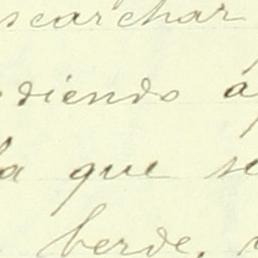 scarchar
diendo á
la que se
berde,